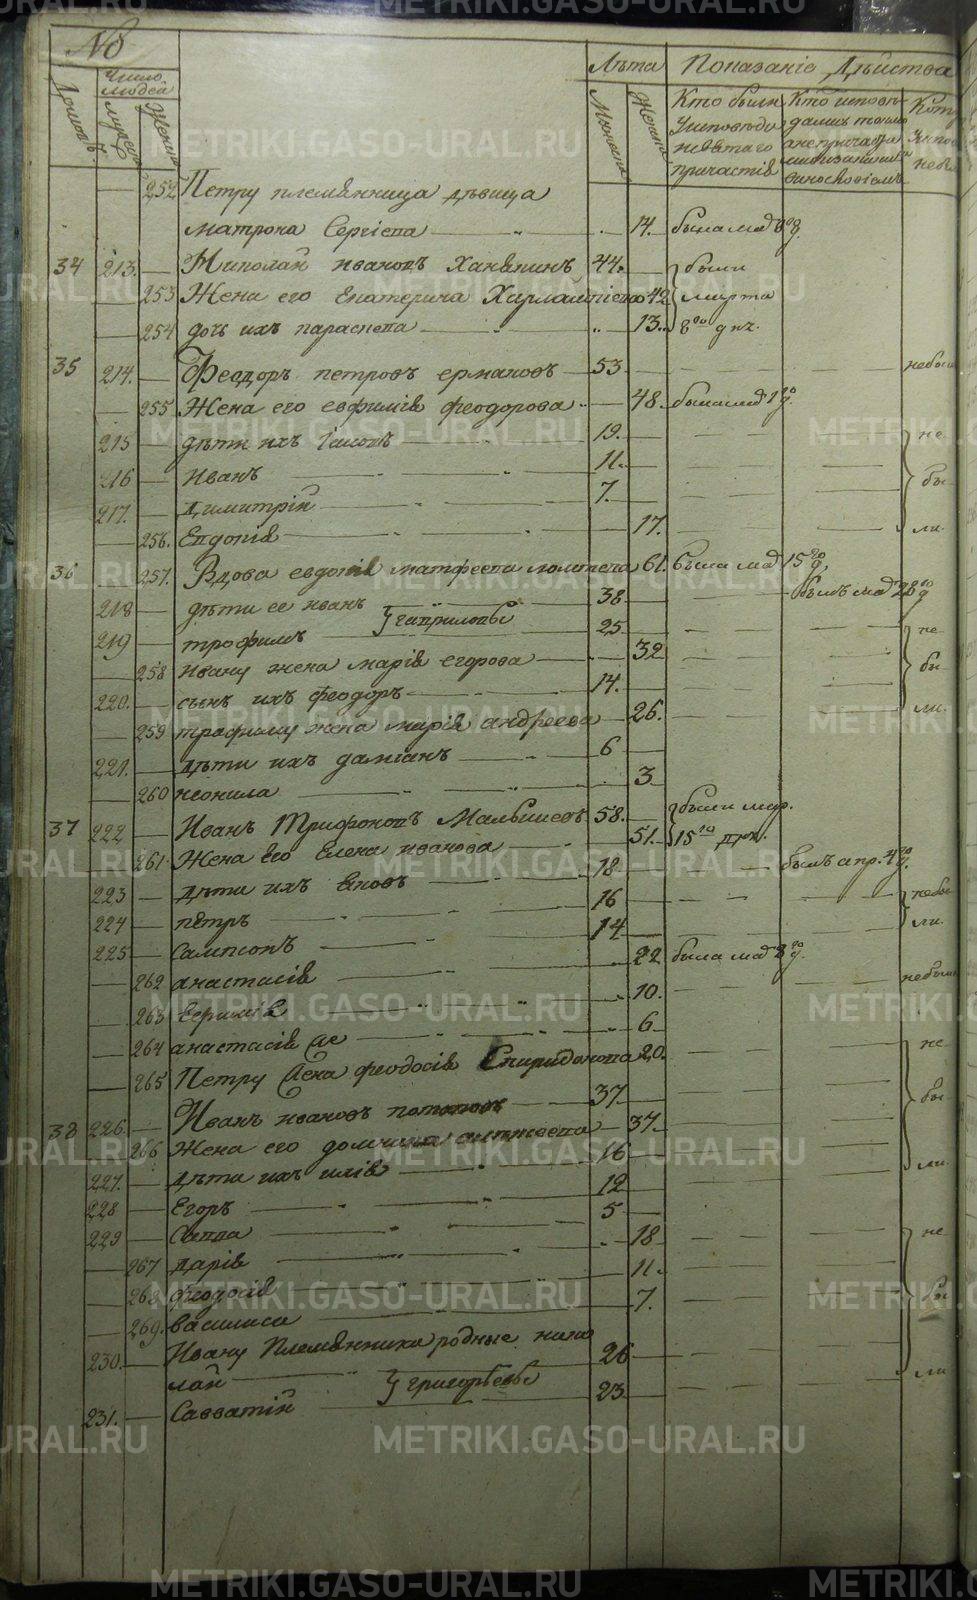 №
Число людей
Домовъ
Мужеск
Женска
Лѣта
Мужеска
Женска
Показаніе Дѣйства
Кто были
Кто исповѣ-
Кото
252 Петру племянница дѣвица
матрона Сергіева 14. была мая 8го д.
34 213. Николай ивановъ Ханянинъ 44. были
253 Жена его екатерина Харлампіева 42 марта
254 дочь ихъ параскева 13. 8го дня.
35 214. Феодоръ петровъ ермаковъ 53 небыл
255 Жена его евфимія феодорова 48. была мая 1го д.
215 дѣти ихъ 19. не
216 иванъ 11. бы
217. димитрій 7.
256. Евдокія 17. ли.
36 257. Вдова евдокія матфеева 61. была мая 15го д.
218 дѣти ее иванъ 38 былъ мая 28го д
219 трофимъ } гавриловы 25 не
258 ивану жена марія егорова 32 бы
220. сынъ ихъ феодоръ 14.
259 трофиму жена марія андреева 26. ли.
221. дѣти ихъ даміанъ 6
260 неонила 3
37 222 Иванъ Трифоновъ Малышевъ 58. были мар.
261 Жена его Елена иванова 51. 15го дня.
223 дѣти ихъ 18 былъ апр. 4го д.
224 петръ 16 небы
225 сампсонъ 14 ли.
262 анастасія 22 была мая 8го д.
263 10. небыл
264 анастасія же 6
265 Петру жена феодосія Спиридонова 20. не
38 226. Иванъ ивановъ потаповъ 37 бы
266 Жена его 37.
227. дѣти ихъ илія 16 ли
228 Егоръ 12
229 Савва 5
267 дарія 18 не
268 феодосія 11.
269. василиса 7. бы
230. Ивану Племянники родные нико
лай } григорьевы 26 ли
231. Савватій 23
METRIKI.GASO-URAL.RU